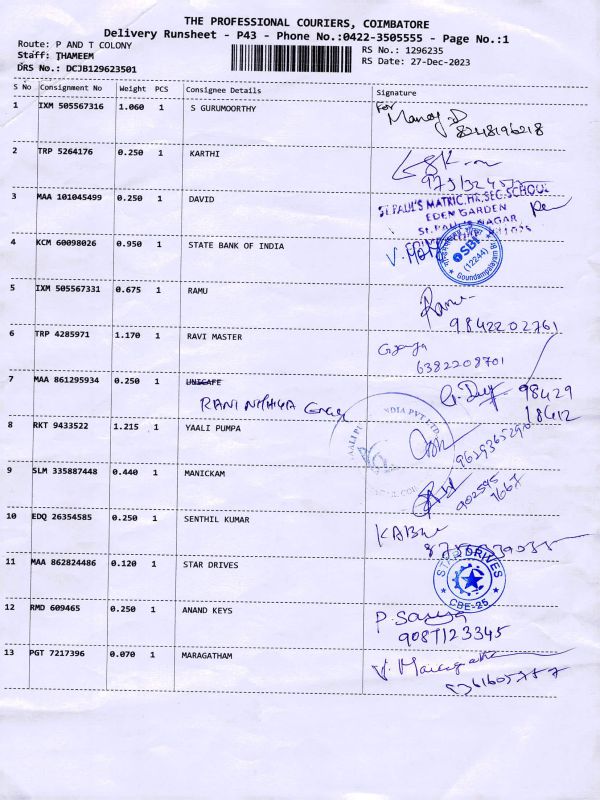 THE PROFESSIONAL COURIERS, COIMBATORE
Delivery Runsheet - P43 - Phone No.:0422-3505555 - Page No.:1
Route: P AND T COLONY
Staff: THAMEEM
DRS No.: DCJB129623501
RS No.: 1296235
RS Date: 27-Dec-2023
S No Consignment No Weight PCS Consignee Details Signature
1 IXM 505567316 1.060 1 S GURUMOORTHY
For Manoj.D
8248196218
2 TRP 5264176 0.250 1 KARTHI
3 MAA 101045499 0.250 1 DAVID
St.PAUL'S MATRIC.HR.SEC.SCHOOL
EDEN GARDEN
St.PAUL'S NAGAR
4 KCM 60098026 0.950 1 STATE BANK OF INDIA
SBI
(12244)
Goundampalayam Br
5 IXM 505567331 0.675 1 RAMU
Ramu
9842202761
6 TRP 4285971 1.170 1 RAVI MASTER
6382208701
7 MAA 861295934 0.250 1 UNICAFE
RANI
98429
18412
8 RKT 9433522 1.215 1 YAALI PUMPA
INDIA PVT LTD
9629365290
9 SLM 335887448 0.440 1 MANICKAM
10 EDQ 26354585 0.250 1 SENTHIL KUMAR
11 MAA 862824486 0.120 1 STAR DRIVES
STAR DRIVES
CBE-25
12 RMD 609465 0.250 1 ANAND KEYS
9087123345
13 PGT 7217396 0.070 1 MARAGATHAM
V. Maragatha